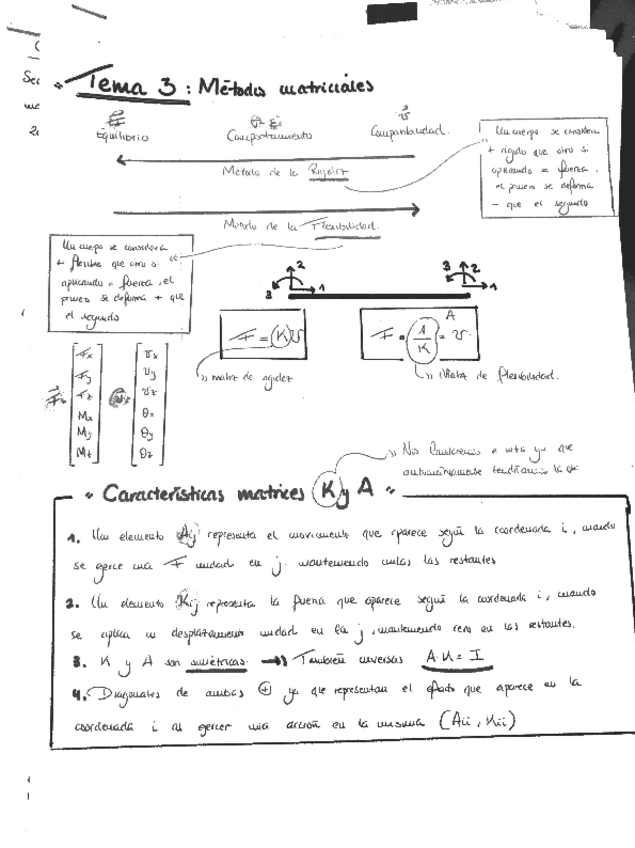 " Tema 3 : Métodos matriciales
Equilibrio Comportamiento Compatibilidad.
Un cuerpo se considera
+ rígido que otro si
aplicando = fuerza,
el primero se deforma
- que el segundo
Método de la Rigidez
Método de la Flexibilidad.
Un cuerpo se considera
+ flexible que otro si
aplicando = fuerza, el
primero se deforma + que
el segundo
2 3 1
3 2 1
F = K U
A
F = 1/K = U
Fx
Fy
Fz
Mx
My
Mz
Ux
Uy
Uz
θx
θy
θz
matriz de rigidez
Matriz de flexibilidad.
Nos a esta ya que
automáticamente tendríamos la
" Características matrices K y A "
1. Un elemento Aij representa el movimiento que aparece según la coordenada i, cuando
se ejerce una F unidad en j manteniendo nulas las restantes
2. Un elemento Kij representa la fuerza que aparece según la coordenada i, cuando
se aplica un desplazamiento unidad en la j, manteniendo cero en las restantes.
3. K y A son simétricas → También inversas A·K = I
4. Diagonales de ambas + ya que representan el efecto que aparece en la
coordenada i al ejercer una acción en la misma (Aii, Kii)